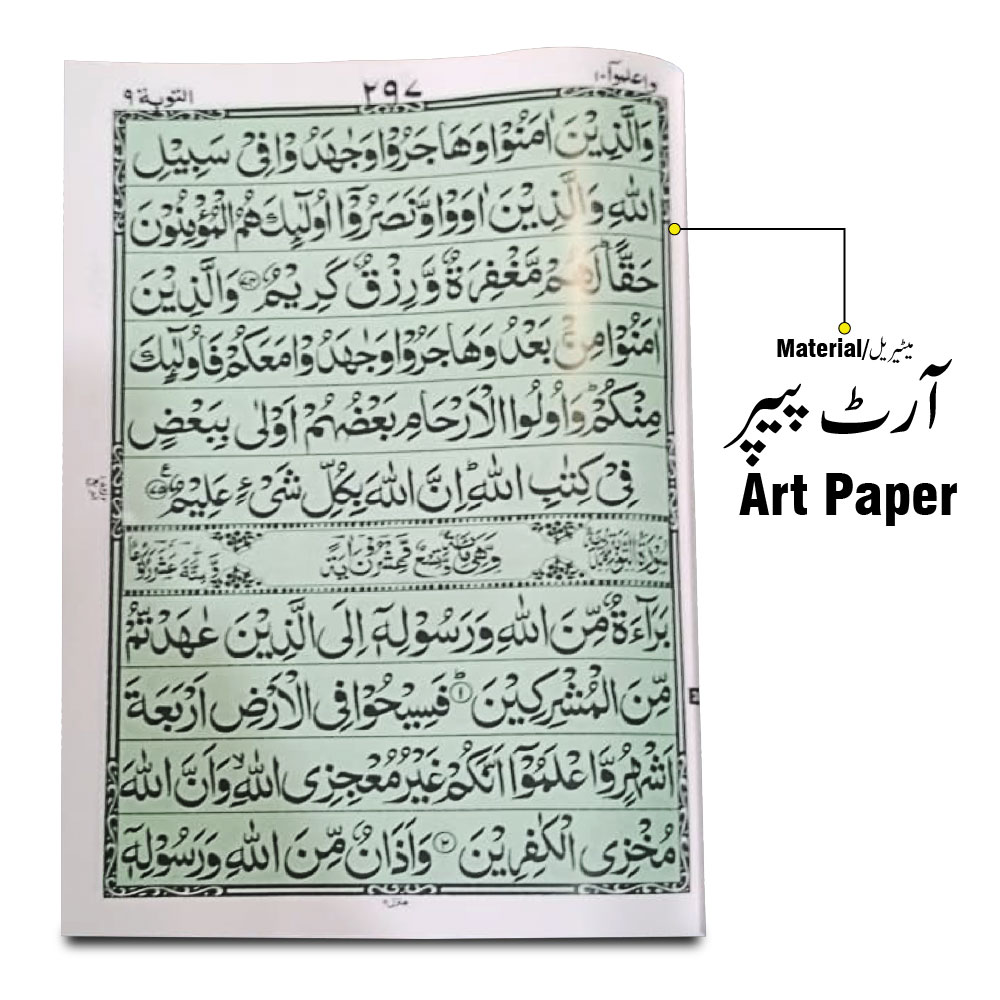 واعلموآ ١٠
٢٩٧
التوبة ٩
وَالَّذِيْنَ اٰمَنُوْا وَهَاجَرُوْا وَجٰهَدُوْا فِيْ سَبِيْلِ
اللّٰهِ وَالَّذِيْنَ اٰوَوْا وَّنَصَرُوْٓا اُولٰٓئِكَ هُمُ الْمُؤْمِنُوْنَ
حَقًّاؕ لَهُمْ مَّغْفِرَةٌ وَّرِزْقٌ كَرِيْمٌ ﴿۷۴﴾ وَالَّذِيْنَ
اٰمَنُوْا مِنْۢ بَعْدُ وَهَاجَرُوْا وَجٰهَدُوْا مَعَكُمْ فَاُولٰٓئِكَ
مِنْكُمْؕ وَاُولُوا الْاَرْحَامِ بَعْضُهُمْ اَوْلٰى بِبَعْضٍ
فِيْ كِتٰبِ اللّٰهِؕ اِنَّ اللّٰهَ بِكُلِّ شَيْءٍ عَلِيْمٌ ﴿۷۵﴾ ع
بَرَآءَةٌ مِّنَ اللّٰهِ وَرَسُوْلِهٖٓ اِلَى الَّذِيْنَ عٰهَدْتُّمْ
مِّنَ الْمُشْرِكِيْنَؕ ﴿۱﴾ فَسِيْحُوْا فِي الْاَرْضِ اَرْبَعَةَ
اَشْهُرٍ وَّاعْلَمُوْٓا اَنَّكُمْ غَيْرُ مُعْجِزِي اللّٰهِۙ وَاَنَّ اللّٰهَ
مُخْزِي الْكٰفِرِيْنَ ﴿۲﴾ وَاَذَانٌ مِّنَ اللّٰهِ وَرَسُوْلِهٖٓ
منزل ٢
Material/میٹیریل
آرٹ پیپر
Art Paper